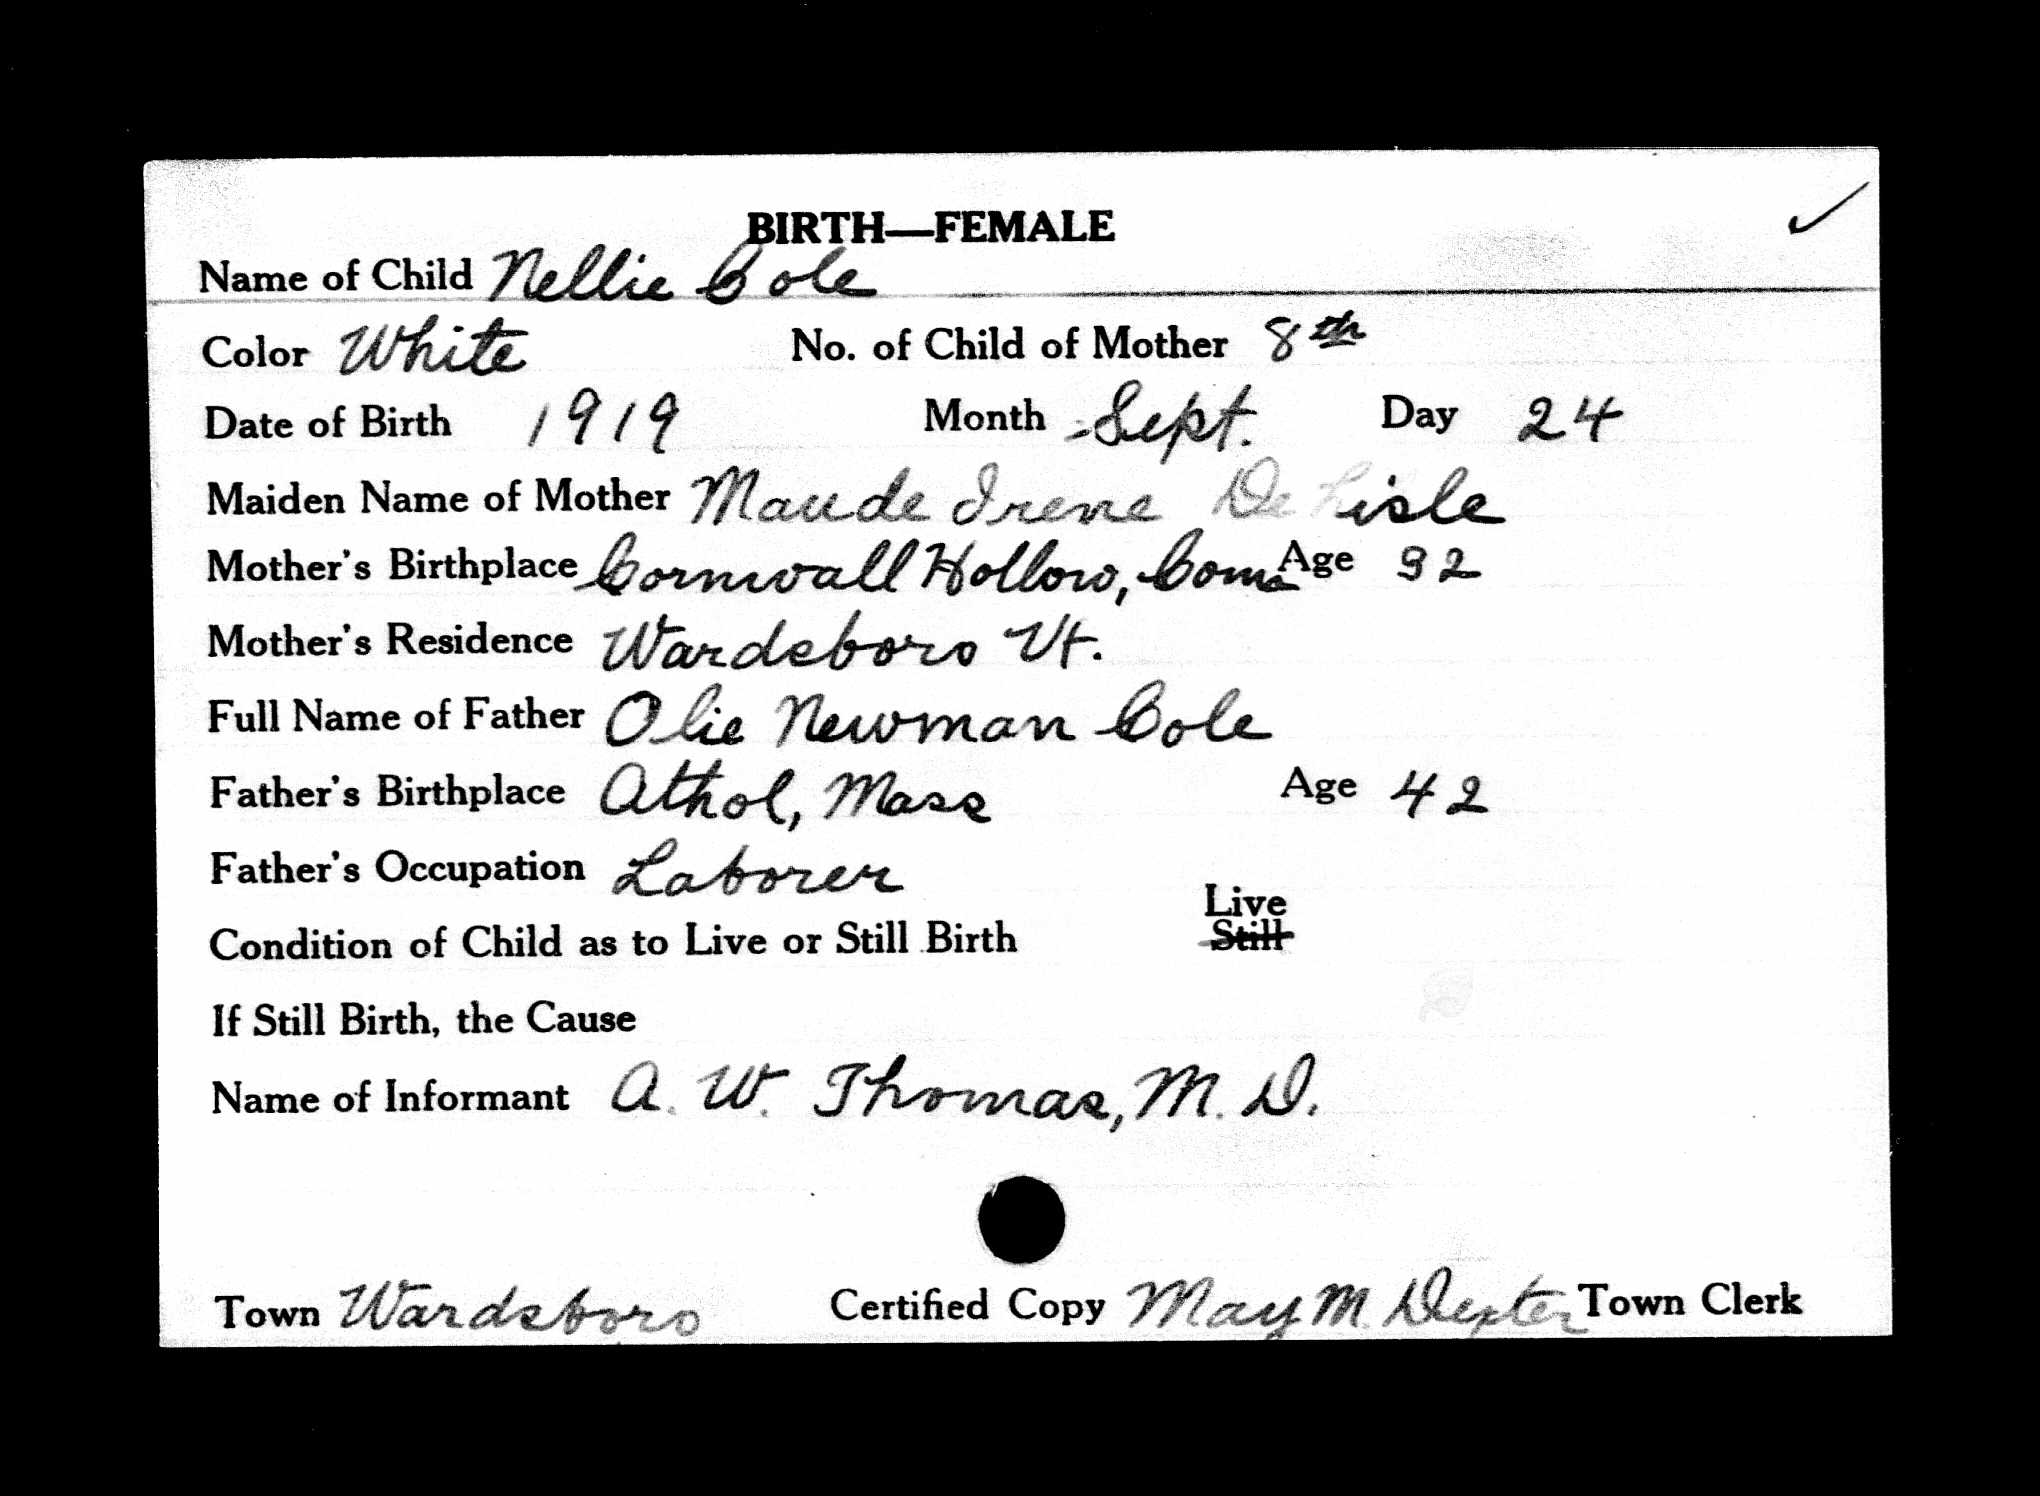 BIRTH—FEMALE
Name of Child Nellie Cole
Color White No. of Child of Mother 8th
Date of Birth 1919 Month Sept. Day 24
Maiden Name of Mother Maude Irene De Lisle
Mother's Birthplace Cornwall Hollow, Conn Age 32
Mother's Residence Wardsboro Vt.
Full Name of Father Olie Newman Cole
Father's Birthplace Athol, Mass Age 42
Father's Occupation Laborer
Live
Condition of Child as to Live or Still Birth Still
If Still Birth, the Cause
Name of Informant A. W. Thomas, M. D.
Town Wardsboro Certified Copy May M. Dexter Town Clerk